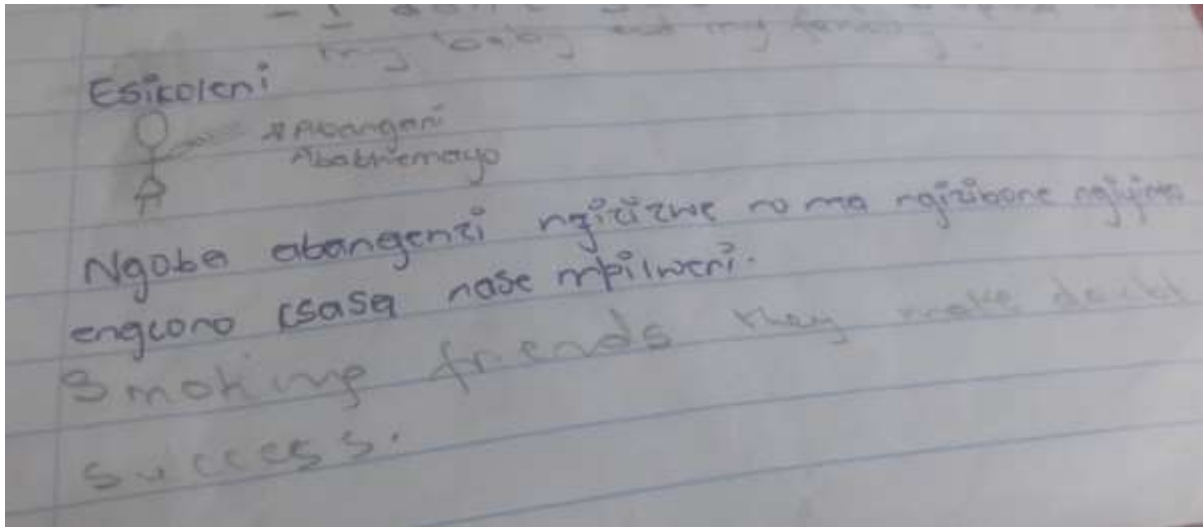 my baby and my family.
Esikoleni
* Abangani
Ababhemayo
Ngoba abangenzi ngizizwe noma ngizibone ngiyinto
engcono csasa nase mpilweni.
Smoking friends they make doubt
success.